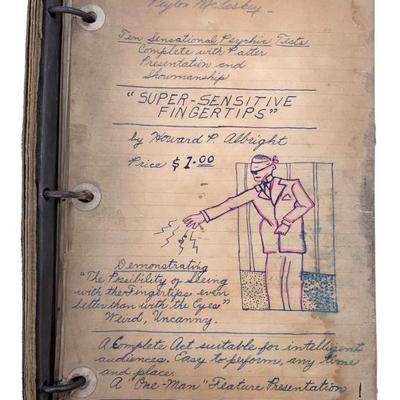 Ten Sensational Psychic Tests
Complete with Patter
Presentation and
Showmanship
"SUPER-SENSITIVE
FINGERTIPS"
by Howard P. Albright
Price $1.00
Demonstrating
"The Possibility of Seeing
with the Fingertips even
better than with the Eyes"
Weird, Uncanny.
A Complete Act suitable for intelligent
audiences. Easy to perform, any time
and place.
A "One-Man" Feature Presentation